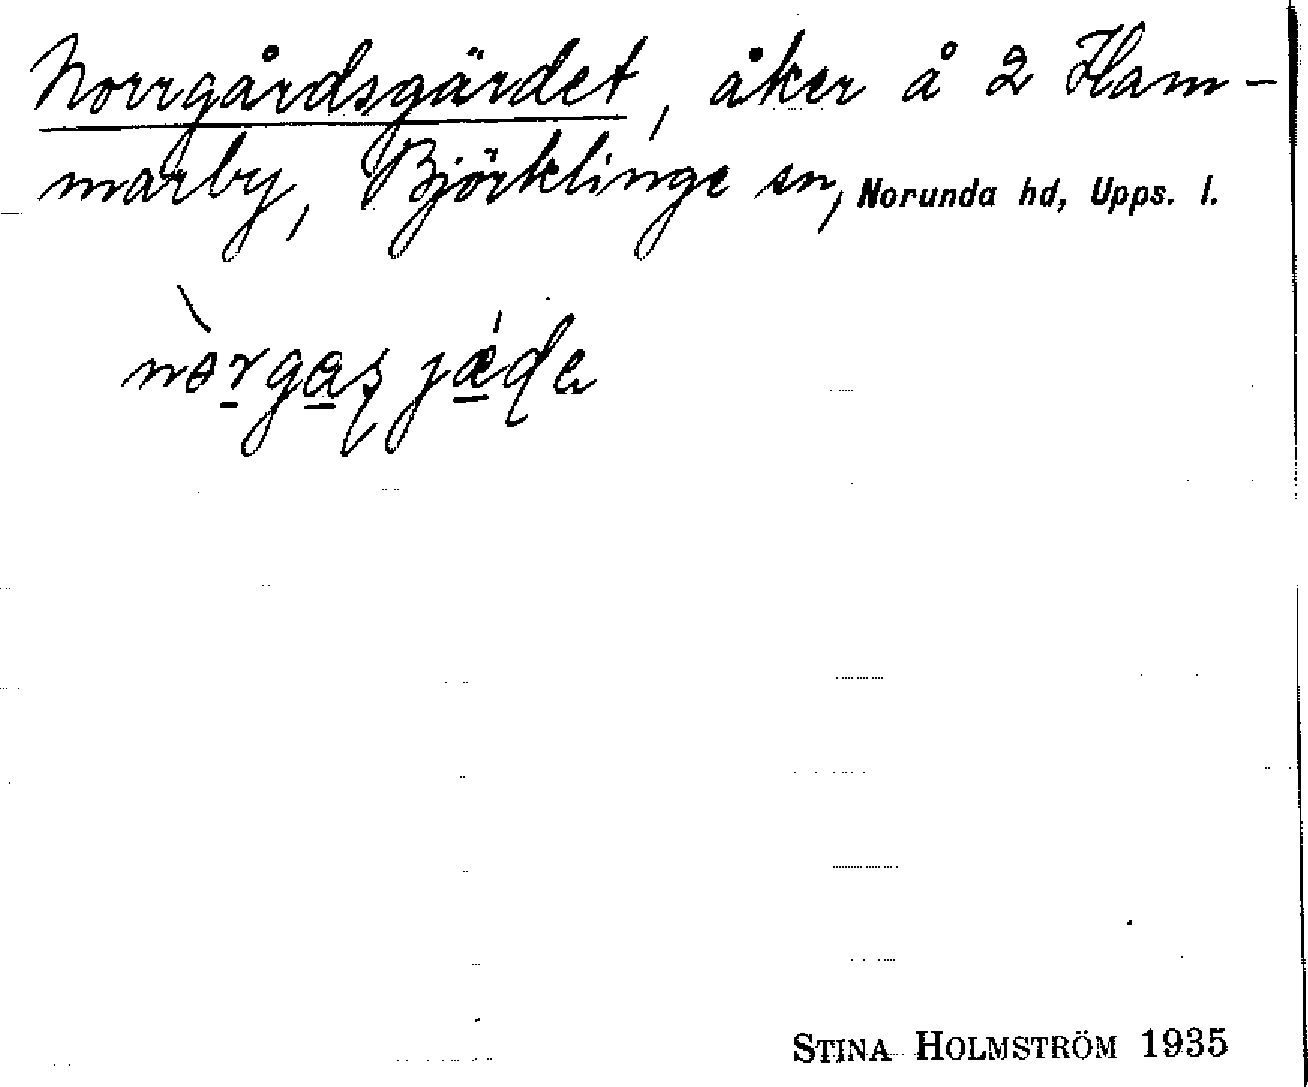 Norrgårdsgärdet, åker å 2 Ham-
marby, Björklinge sn, Norunda hd, Upps. l.
STINA HOLMSTRÖM 1935